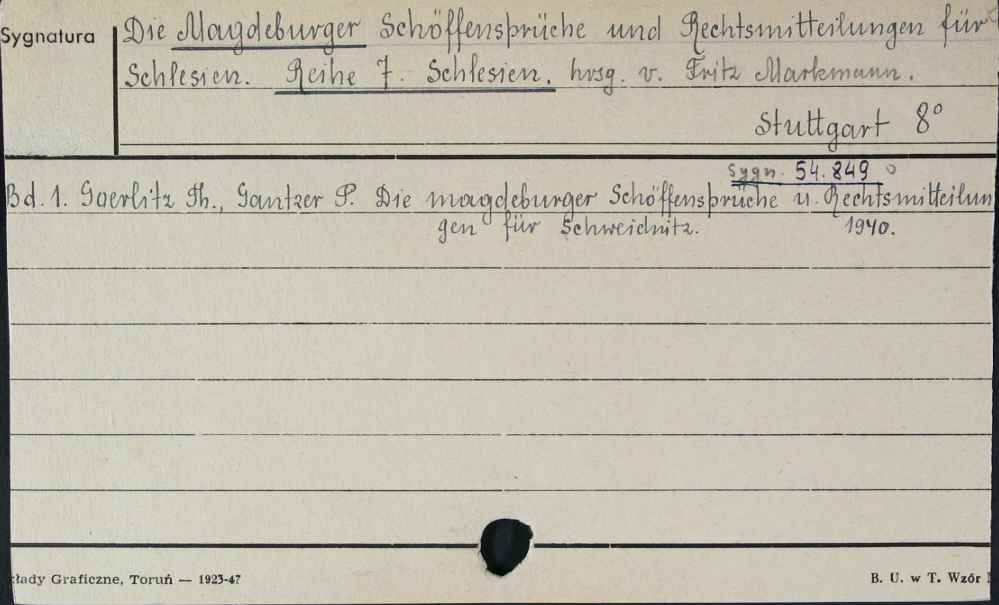 Sygnatura
Die Magdeburger Schöffensprüche und Rechtsmitteilungen für
Schlesien. Reihe 7. Schlesien. hrsg. v. Fritz Markmann.
Stuttgart 8°
Sygn. 54.849
Bd. 1. Goerlitz Th., Gantzer P. Die magdeburger Schöffensprüche u. Rechtsmitteilun
gen für Schweidnitz. 1940.
łady Graficzne, Toruń — 1923-47
B. U. w T. Wzór